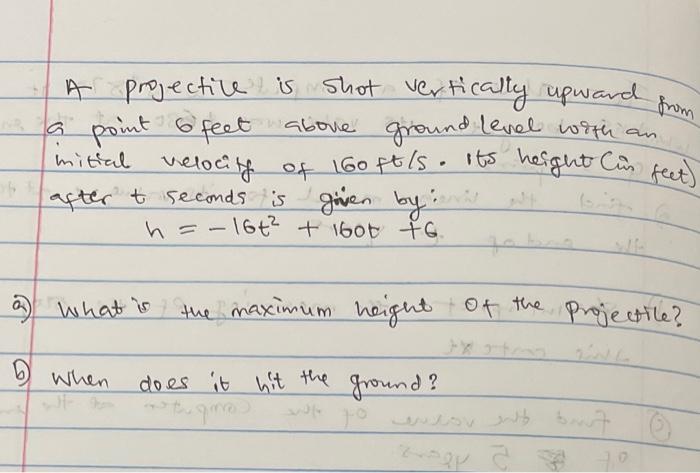 A projectile is shot vertically upward from
a point 6 feet above ground level with an
initial velocity of 160 ft/s. Its height (in feet)
after t seconds is given by:
h = -16t² + 160t + 6
a) What is the maximum height of the projectile?
b) When does it hit the ground?